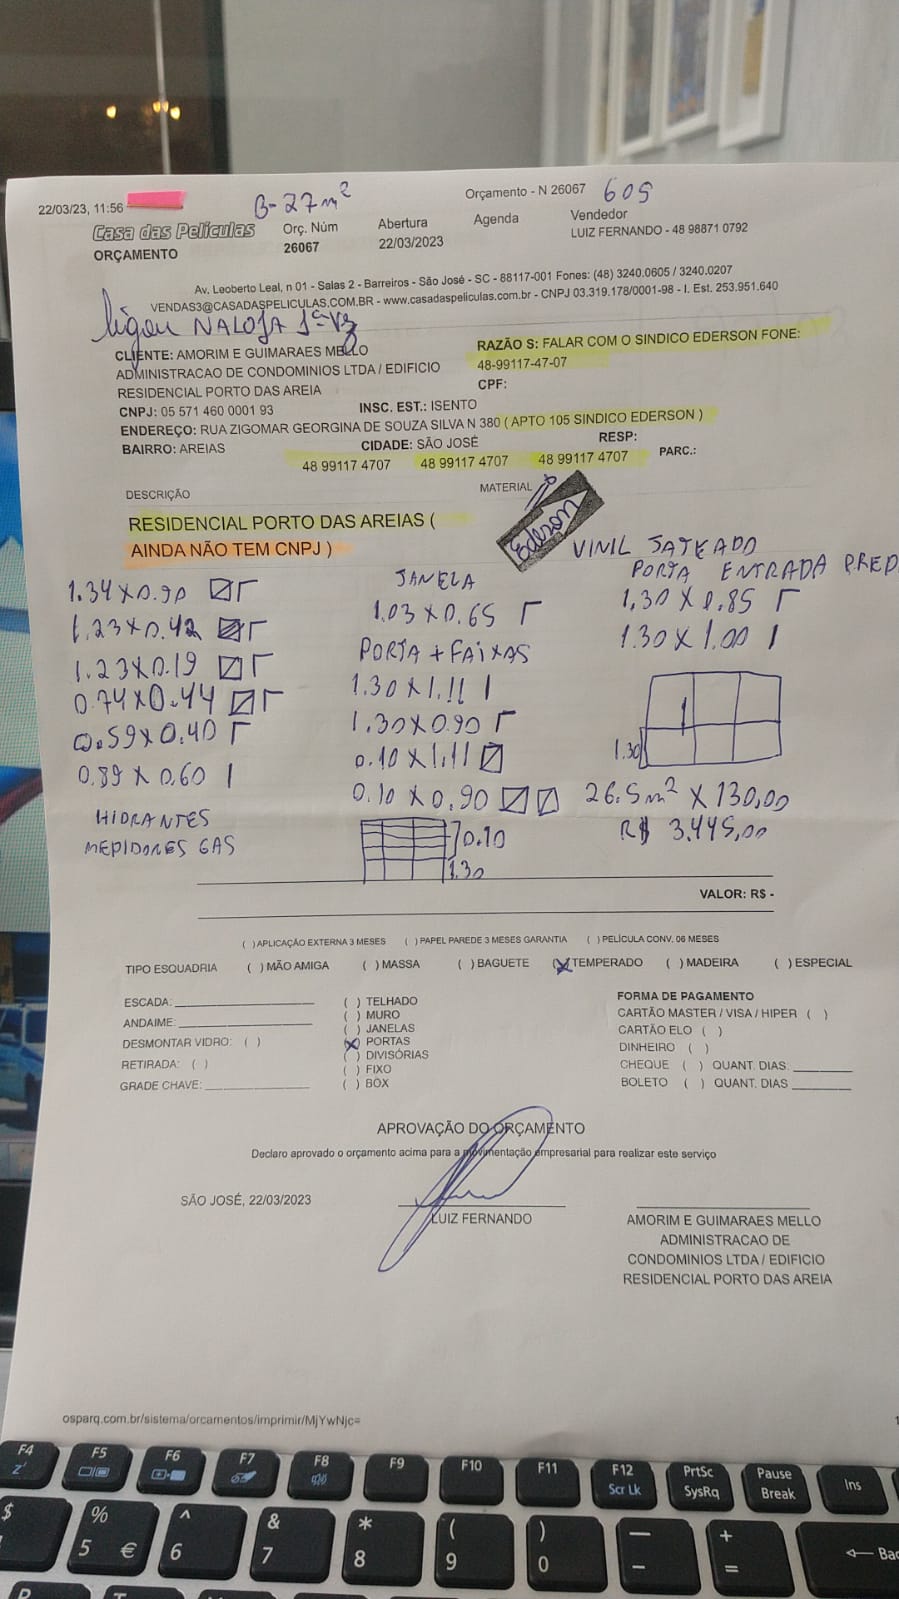 22/03/23, 11:56
B- 27 m²
Orçamento - N 26067
605
Casa das Películas
ORÇAMENTO
Orç. Núm
26067
Abertura
22/03/2023
Agenda
Vendedor
LUIZ FERNANDO - 48 98871 0792
Av. Leoberto Leal, n 01 - Salas 2 - Barreiros - São José - SC - 88117-001 Fones: (48) 3240.0605 / 3240.0207
VENDAS3@CASADASPELICULAS.COM.BR - www.casadaspeliculas.com.br - CNPJ 03.319.178/0001-98 - I. Est. 253.951.640
ligou NA LOJA 1ª VZ
CLIENTE: AMORIM E GUIMARAES MELLO
ADMINISTRACAO DE CONDOMINIOS LTDA / EDIFICIO
RESIDENCIAL PORTO DAS AREIA
RAZÃO S: FALAR COM O SINDICO EDERSON FONE:
48-99117-47-07
CPF:
CNPJ: 05 571 460 0001 93
INSC. EST.: ISENTO
ENDEREÇO: RUA ZIGOMAR GEORGINA DE SOUZA SILVA N 380 ( APTO 105 SINDICO EDERSON )
BAIRRO: AREIAS
CIDADE: SÃO JOSÉ
RESP:
48 99117 4707
48 99117 4707
48 99117 4707
PARC.:
DESCRIÇÃO
MATERIAL
RESIDENCIAL PORTO DAS AREIAS (
AINDA NÃO TEM CNPJ )
Ederson
VINIL JATEADO
1.34 X 0.90
1.23 X 0.42
1.23 X 0.19
0.74 X 0.44
0.59 X 0.40
0.89 X 0.60
HIDRANTES
MEDIDORES GAS
JANELA
1.03 X 0.65
PORTA + FAIXAS
1.30 X 1.11
1.30 X 0.90
0.10 X 1.11
0.10 X 0.90
0.10
1.30
PORTA ENTRADA PRED
1.30 X 0.85
1.30 X 1.00
1.30
26.5 m² X 130,00
R$ 3.445,00
VALOR: R$ -
( )APLICAÇÃO EXTERNA 3 MESES ( ) PAPEL PAREDE 3 MESES GARANTIA ( ) PELÍCULA CONV. 06 MESES
TIPO ESQUADRIA ( )MÃO AMIGA ( ) MASSA ( ) BAGUETE (X)TEMPERADO ( ) MADEIRA ( ) ESPECIAL
ESCADA:
ANDAIME:
DESMONTAR VIDRO: ( )
RETIRADA: ( )
GRADE CHAVE:
( ) TELHADO
( ) MURO
( ) JANELAS
(X) PORTAS
( ) DIVISÓRIAS
( ) FIXO
( ) BOX
FORMA DE PAGAMENTO
CARTÃO MASTER / VISA / HIPER ( )
CARTÃO ELO ( )
DINHEIRO ( )
CHEQUE ( ) QUANT. DIAS:
BOLETO ( ) QUANT. DIAS
APROVAÇÃO DO ORÇAMENTO
Declaro aprovado o orçamento acima para a movimentação empresarial para realizar este serviço
SÃO JOSÉ, 22/03/2023
LUIZ FERNANDO
AMORIM E GUIMARAES MELLO
ADMINISTRACAO DE
CONDOMINIOS LTDA / EDIFICIO
RESIDENCIAL PORTO DAS AREIA
osparq.com.br/sistema/orcamentos/imprimir/MjYwNjc=
F4 F5 F6 F7 F8 F9 F10 F11 F12 PrtSc Pause Ins
Scr Lk SysRq Break
$ % ^ & * ( ) — +
5 € 6 7 8 9 0 - = Bac